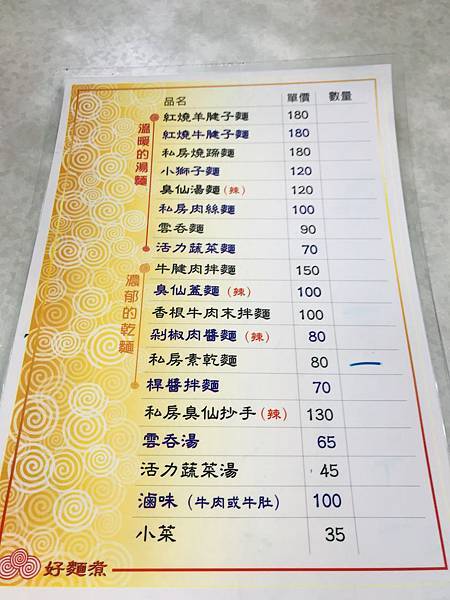 品名 單價 數量
溫暖的湯麵
紅燒羊腱子麵 180
紅燒牛腱子麵 180
私房燒蹄麵 180
小獅子麵 120
臭仙湯麵(辣) 120
私房肉絲麵 100
雲吞麵 90
活力蔬菜麵 70
濃郁的乾麵
牛腱肉拌麵 150
臭仙蓋麵(辣) 100
香根牛肉末拌麵 100
剁椒肉醬麵(辣) 80
私房素乾麵 80
桿醬拌麵 70
私房臭仙抄手(辣) 130
雲吞湯 65
活力蔬菜湯 45
滷味(牛肉或牛肚) 100
小菜 35
好麵煮